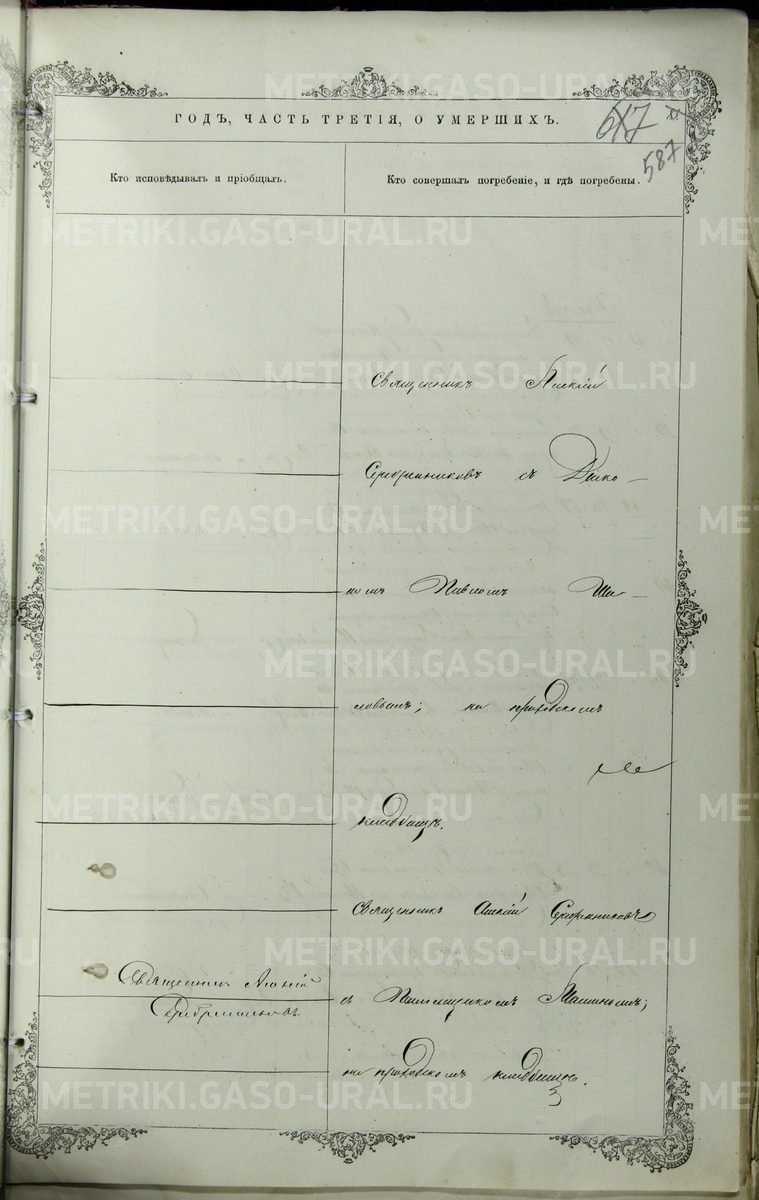 METRIKI.GASO-URAL.RU
587
ГОДЪ, ЧАСТЬ ТРЕТІЯ, О УМЕРШИХЪ.
Кто исповѣдывалъ и пріобщалъ.
Кто совершалъ погребеніе, и гдѣ погребены.
Священникъ
Серебренниковъ съ Дьяко-
номъ Павломъ Ши-
ловымъ; на приходскомъ
кладбищѣ.
Священникъ Серебренниковъ
Священникъ
Серебренниковъ.
съ
на приходскомъ кладбищѣ.